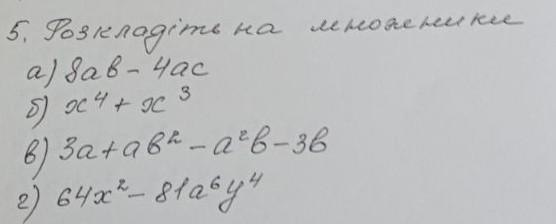 5. Розкладіть на множники
а) 8ав - 4ас
б) x⁴ + x³
в) 3а + ав² - а²в - 3в
г) 64x² - 81a⁶y⁴